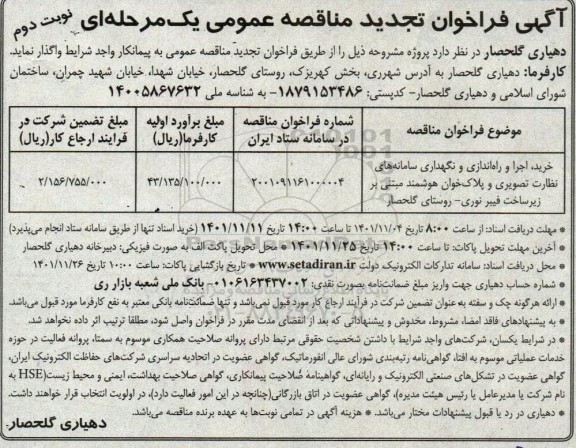 آگهی فراخوان تجدید مناقصه عمومی یک‌مرحله‌ای
نوبت دوم
دهیاری گلحصار در نظر دارد پروژه مشروحه ذیل را از طریق فراخوان تجدید مناقصه عمومی به پیمانکار واجد شرایط واگذار نماید.
کارفرما: دهیاری گلحصار به آدرس شهرری، بخش کهریزک، روستای گلحصار، خیابان شهدا، خیابان شهید چمران، ساختمان
شورای اسلامی و دهیاری گلحصار- کدپستی: ۱۸۷۹۱۵۳۴۸۶- به شناسه ملی ۱۴۰۰۵۸۶۷۶۳۲
موضوع فراخوان مناقصه
شماره فراخوان مناقصه در سامانه ستاد ایران
مبلغ برآورد اولیه کارفرما(ریال)
مبلغ تضمین شرکت در فرایند ارجاع کار(ریال)
خرید، اجرا و راه‌اندازی و نگهداری سامانه‌های
نظارت تصویری و پلاک‌خوان هوشمند مبتنی بر
زیرساخت فیبر نوری- روستای گلحصار
۲۰۰۱۰۹۱۱۶۱۰۰۰۰۰۴
۴۳/۱۳۵/۱۰۰/۰۰۰
۲/۱۵۶/۷۵۵/۰۰۰
* مهلت دریافت اسناد: از ساعت ۸:۰۰ تاریخ ۱۴۰۱/۱۱/۰۴ تا ساعت ۱۴:۰۰ تاریخ ۱۴۰۱/۱۱/۱۱ (خرید اسناد تنها از طریق سامانه ستاد انجام می‌پذیرد)
* آخرین مهلت تحویل پاکات: تا ساعت ۱۴:۰۰ تاریخ ۱۴۰۱/۱۱/۲۵ * محل تحویل پاکت الف به صورت فیزیکی: دبیرخانه دهیاری گلحصار
* محل دریافت اسناد: سامانه تدارکات الکترونیک دولت www.setadiran.ir * تاریخ بازگشایی پاکات: ساعت ۱۰:۰۰ تاریخ ۱۴۰۱/۱۱/۲۶
* شماره حساب دهیاری جهت واریز مبلغ ضمانت‌نامه بصورت نقدی: ۰۱۰۶۱۶۳۴۳۷۰۰۲- بانک ملی شعبه بازار ری
* ارائه هرگونه چک و سفته به‌عنوان تضمین شرکت در فرآیند ارجاع کار مورد قبول نمی‌باشد و تنها ضمانت‌نامه بانکی معتبر به نفع کارفرما مورد قبول می‌باشد.
* به پیشنهادهای فاقد امضا، مشروط، مخدوش و پیشنهاداتی که بعد از انقضای مدت مقرر در فراخوان واصل شود، مطلقا ترتیب اثر داده نخواهد شد.
* در شرایط یکسان، شرکت‌های واجد شرایط با داشتن شخصیت حقوقی مرتبط دارای پروانه صلاحیت همکاری موسوم به سمتا، پروانه فعالیت در حوزه
خدمات عملیاتی موسوم به افتا، گواهی‌نامه رتبه‌بندی شورای عالی انفورماتیک، گواهی عضویت در اتحادیه سراسری شرکت‌های حفاظت الکترونیک ایران،
گواهی عضویت در تشکل‌های صنعتی الکترونیک و رایانه‌ای، گواهینامه صلاحیت پیمانکاری، گواهی صلاحیت بهداشت، ایمنی و محیط زیست(HSE به
نام شرکت یا مدیرعامل یا رئیس هیئت مدیره)، گواهی عضویت در اتاق بازرگانی(چنانچه در این امور فعالیت دارد)، در اولویت انتخاب قرار خواهند داشت.
* دهیاری در رد یا قبول پیشنهادات مختار می‌باشد. * هزینه آگهی در تمامی نوبت‌ها به عهده برنده مناقصه می‌باشد.
دهیاری گلحصار